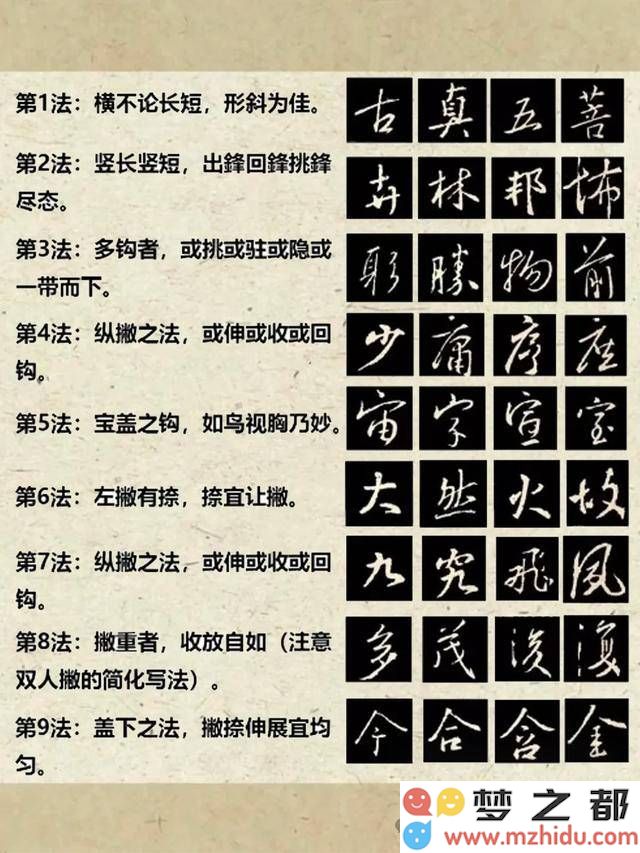 第1法：横不论长短，形斜为佳。
古 真 五 菩
第2法：竖长竖短，出鋒回鋒挑鋒
尽态。
卉 林 邦 怖
第3法：多钩者，或挑或驻或隐或
一带而下。
形 勝 物 前
第4法：纵撇之法，或伸或收或回
钩。
少 庸 序 座
第5法：宝盖之钩，如鸟视胸乃妙。
宙 字 宣 室
第6法：左撇有捺，捺宜让撇。
大 然 火 故
第7法：纵撇之法，或伸或收或回
钩。
九 究 飛 風
第8法：撇重者，收放自如（注意
双人撇的简化写法）。
多 茂 復
第9法：盖下之法，撇捺伸展宜均
匀。
今 合 含 金
梦之都
www.mzhidu.com